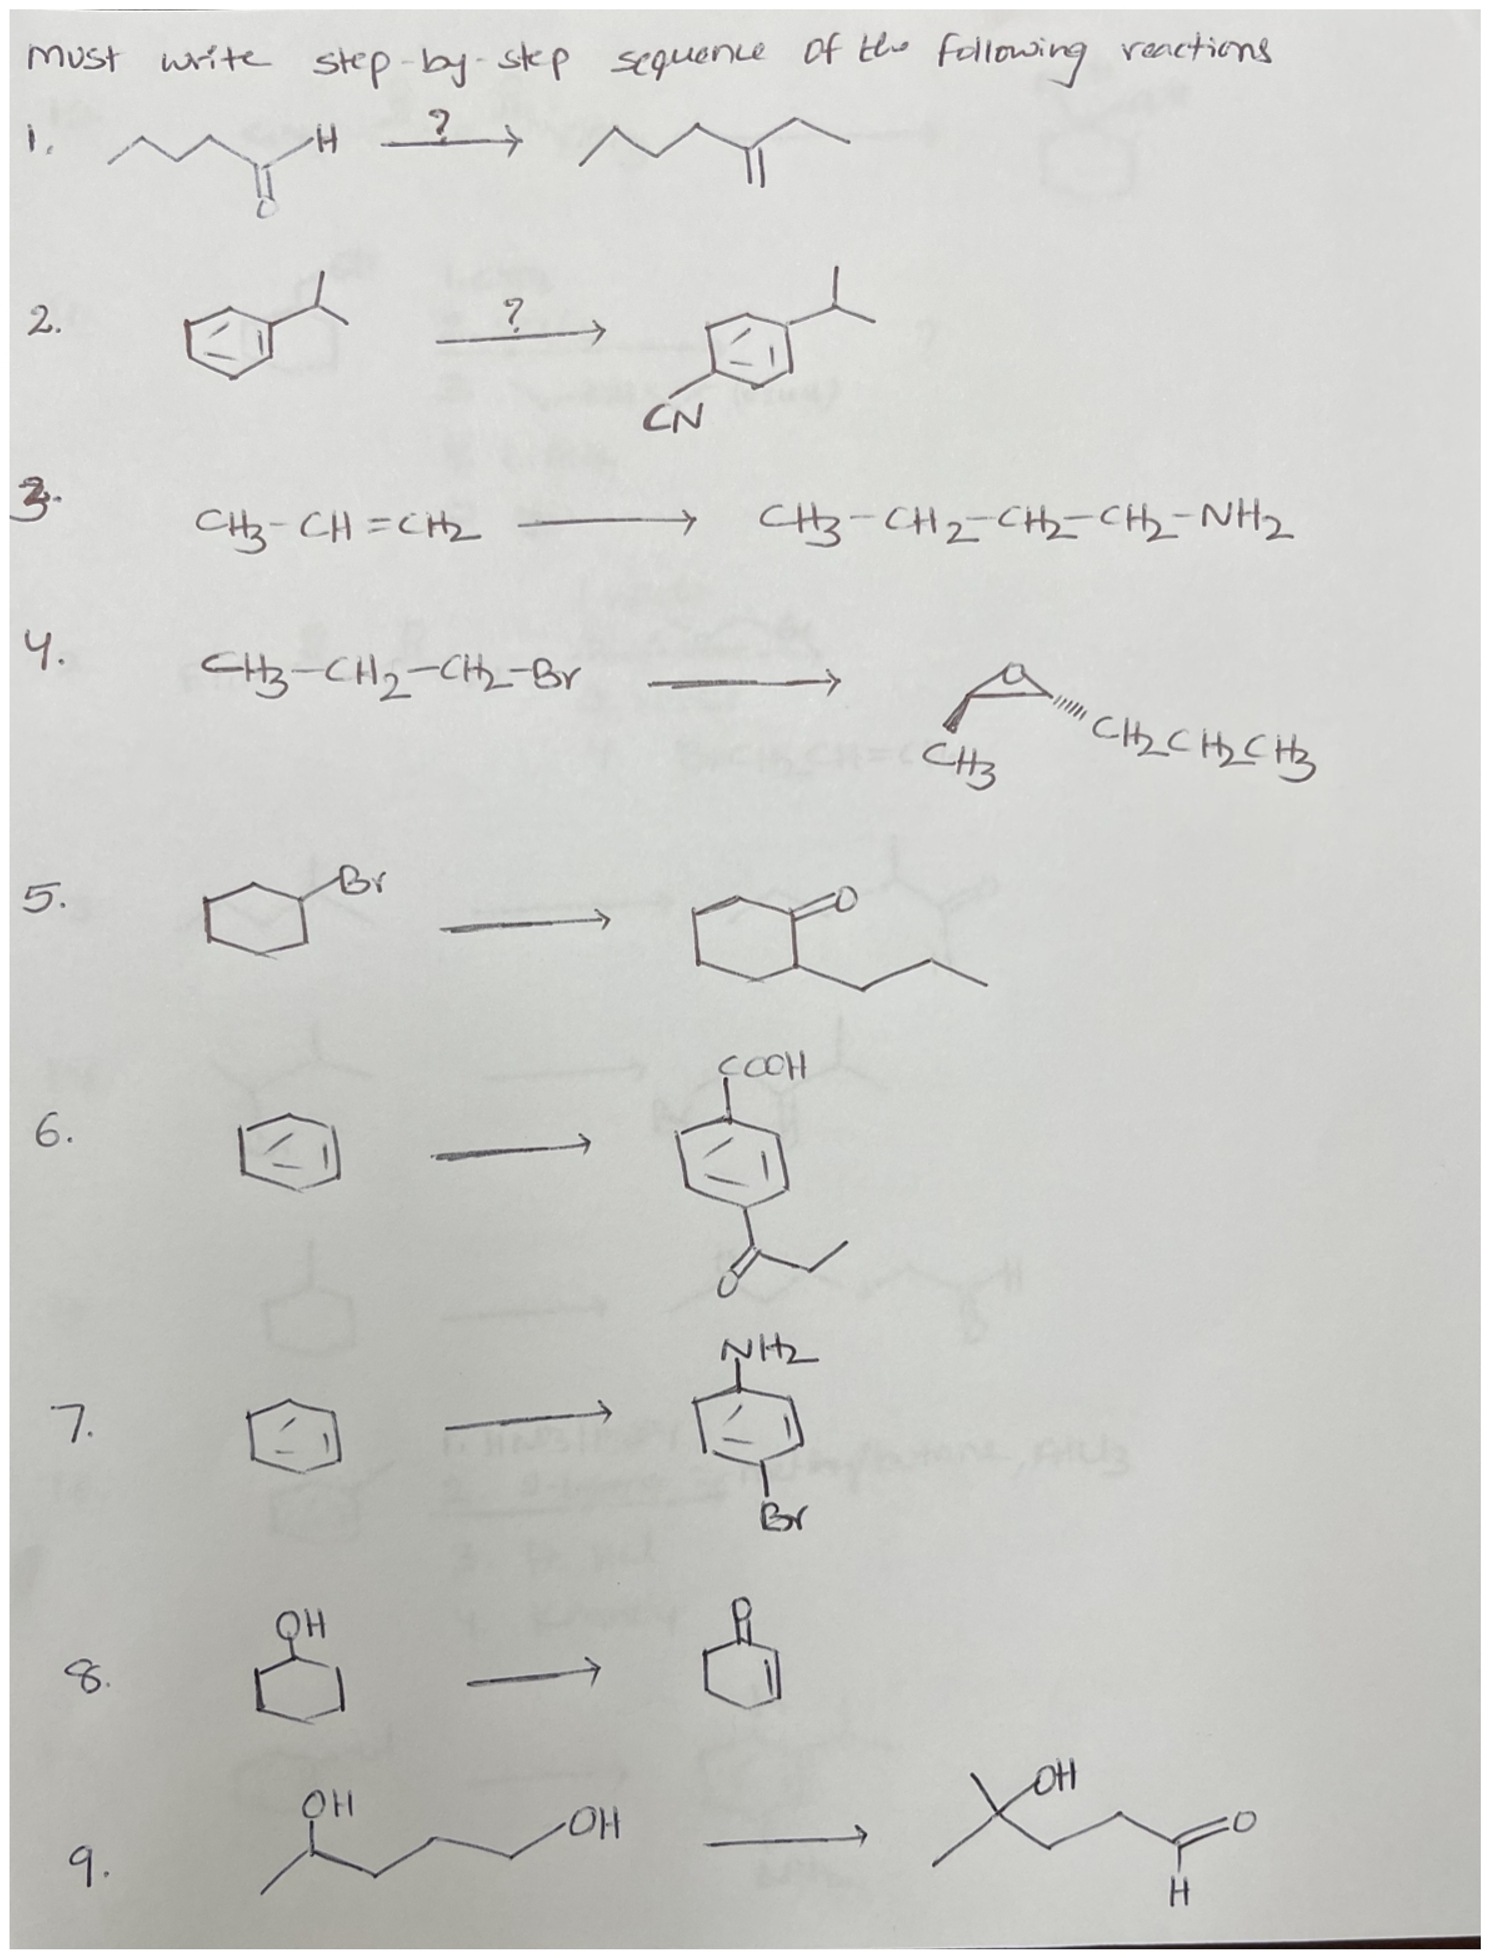 Must write step-by-step sequence of the following reactions
1. H ?
O
2. ?
CN
3. CH3-CH=CH2 CH3-CH2-CH2-CH2-NH2
4. CH3-CH2-CH2-Br O
CH3 CH2CH2CH3
5. Br O
COOH
6.
O
NH2
7.
Br
OH O
8.
OH OH OH O
9.
H